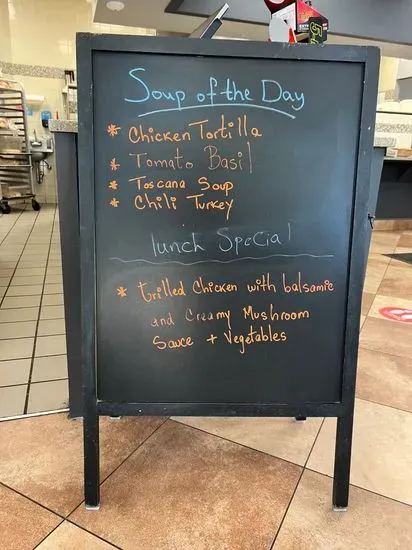 Soup of the Day
* Chicken Tortilla
* Tomato Basil
* Toscana Soup
* Chili Turkey
lunch Special
* Grilled Chicken with balsamic
and Creamy Mushroom
Sauce + Vegetables